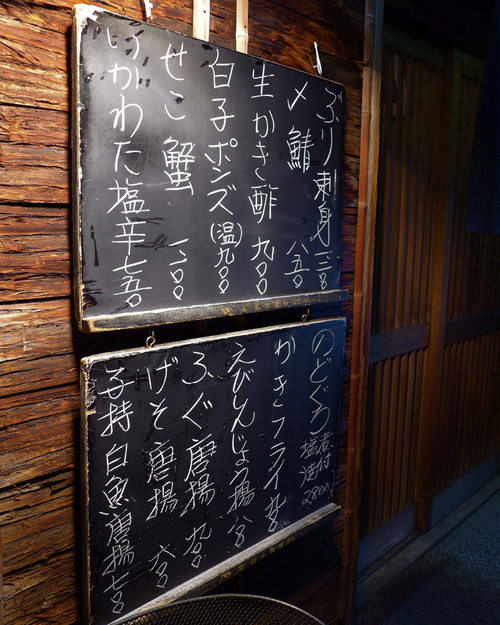 ぶり刺身 一三〇〇
〆鯖 八五〇
生かき酢 九〇〇
白子ポンズ(温) 九〇〇
せこ蟹 一八〇〇
いかわた塩辛 七五〇
のどぐろ 煮付 塩焼 2800
かきフライ
えびしんじょう揚 八〇〇
ふぐ唐揚 九〇〇
げそ唐揚 六〇〇
子持白魚唐揚 七〇〇